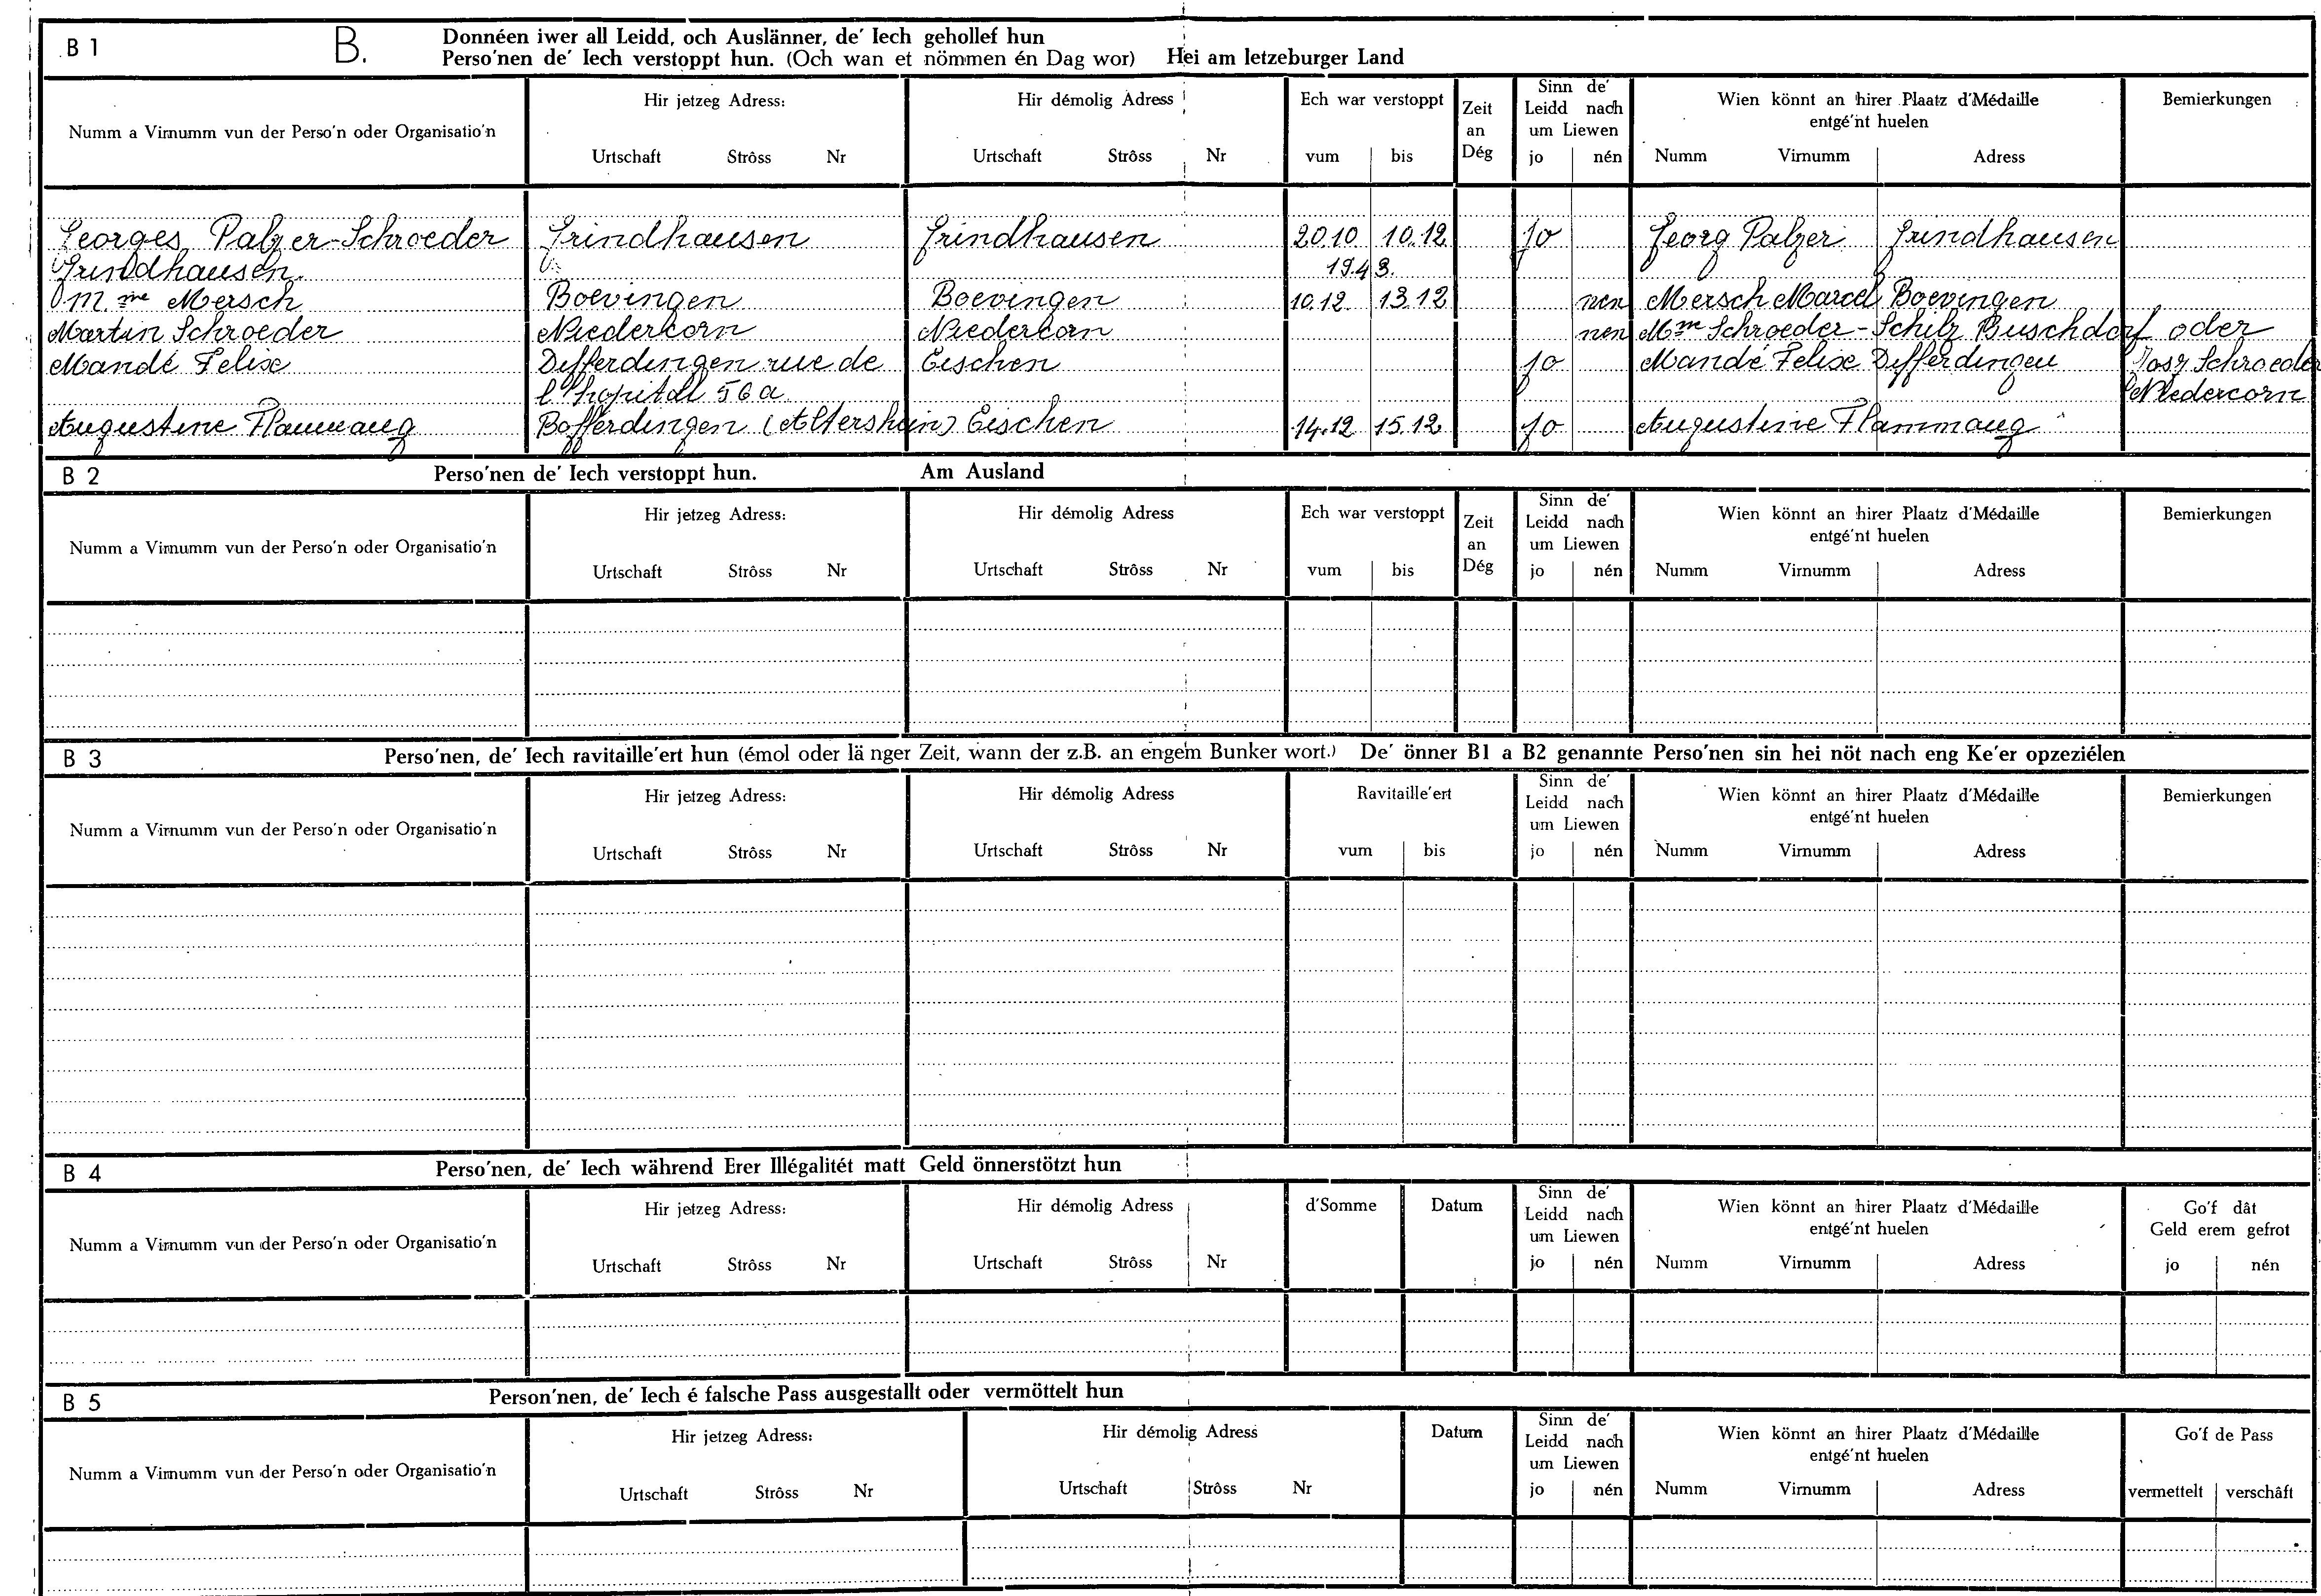 B 1 B. Donnéen iwer all Leidd, och Auslänner, de' Iech gehollef hun
Perso'nen de' Iech verstoppt hun. (Och wan et nömmen én Dag wor) Hei am letzeburger Land
Numm a Virnumm vun der Perso'n oder Organisatio'n
Hir jetzeg Adress:
Urtschaft Strôss Nr
Hir démolig Adress
Urtschaft Strôss Nr
Ech war verstoppt
vum bis
Zeit
an
Dég
Sinn de'
Leidd nach
um Liewen
jo nén
Wien könnt an hirer Plaatz d'Médaille
entgé'nt huelen
Numm Virnumm Adress
Bemierkungen
Georges Palzer-Schroeder Grindhausen Grindhausen 20.10 10.12 jo Georg Palzer Grindhausen
Grindhausen. 1943.
Mme Mersch Boevingen Boevingen 10.12 13.12 nen Mersch Marcel Boevingen
Martin Schroeder Niederkorn Niedercorn nen Mme Schroeder-Schilz Buschdorf oder
Mandé Felix Differdingen rue de Eischen jo Mandé Felix Differdingen Josy Schroeder
l'hopitall 56a Niedercorn
Augustine Flammang Bofferdingen (Altersheim) Eischen 14.12 15.12 jo Augustine Flammang
B 2 Perso'nen de' Iech verstoppt hun. Am Ausland
Numm a Virnumm vun der Perso'n oder Organisatio'n
Hir jetzeg Adress:
Urtschaft Strôss Nr
Hir démolig Adress
Urtschaft Strôss Nr
Ech war verstoppt
vum bis
Zeit
an
Dég
Sinn de'
Leidd nach
um Liewen
jo nén
Wien könnt an hirer Plaatz d'Médaille
entgé'nt huelen
Numm Virnumm Adress
Bemierkungen
B 3 Perso'nen, de' Iech ravitaille'ert hun (émol oder länger Zeit, wann der z.B. an engem Bunker wort.) De' önner B1 a B2 genannte Perso'nen sin hei nöt nach eng Ke'er opzeziélen
Numm a Virnumm vun der Perso'n oder Organisatio'n
Hir jetzeg Adress:
Urtschaft Strôss Nr
Hir démolig Adress
Urtschaft Strôss Nr
Ravitaille'ert
vum bis
Sinn de'
Leidd nach
um Liewen
jo nén
Wien könnt an hirer Plaatz d'Médaille
entgé'nt huelen
Numm Virnumm Adress
Bemierkungen
B 4 Perso'nen, de' Iech während Erer Illégalitét matt Geld önnerstötzt hun
Numm a Virnumm vun der Perso'n oder Organisatio'n
Hir jetzeg Adress:
Urtschaft Strôss Nr
Hir démolig Adress
Urtschaft Strôss Nr
d'Somme
Datum
Sinn de'
Leidd nach
um Liewen
jo nén
Wien könnt an hirer Plaatz d'Médaille
entgé'nt huelen
Numm Virnumm Adress
Go'f dât
Geld erem gefrot
jo nén
B 5 Person'nen, de' Iech é falsche Pass ausgestallt oder vermöttelt hun
Numm a Virnumm vun der Perso'n oder Organisatio'n
Hir jetzeg Adress:
Urtschaft Strôss Nr
Hir démolig Adress
Urtschaft Strôss Nr
Datum
Sinn de'
Leidd nach
um Liewen
jo nén
Wien könnt an hirer Plaatz d'Médaille
entgé'nt huelen
Numm Virnumm Adress
Go'f de Pass
vermettelt verschâft